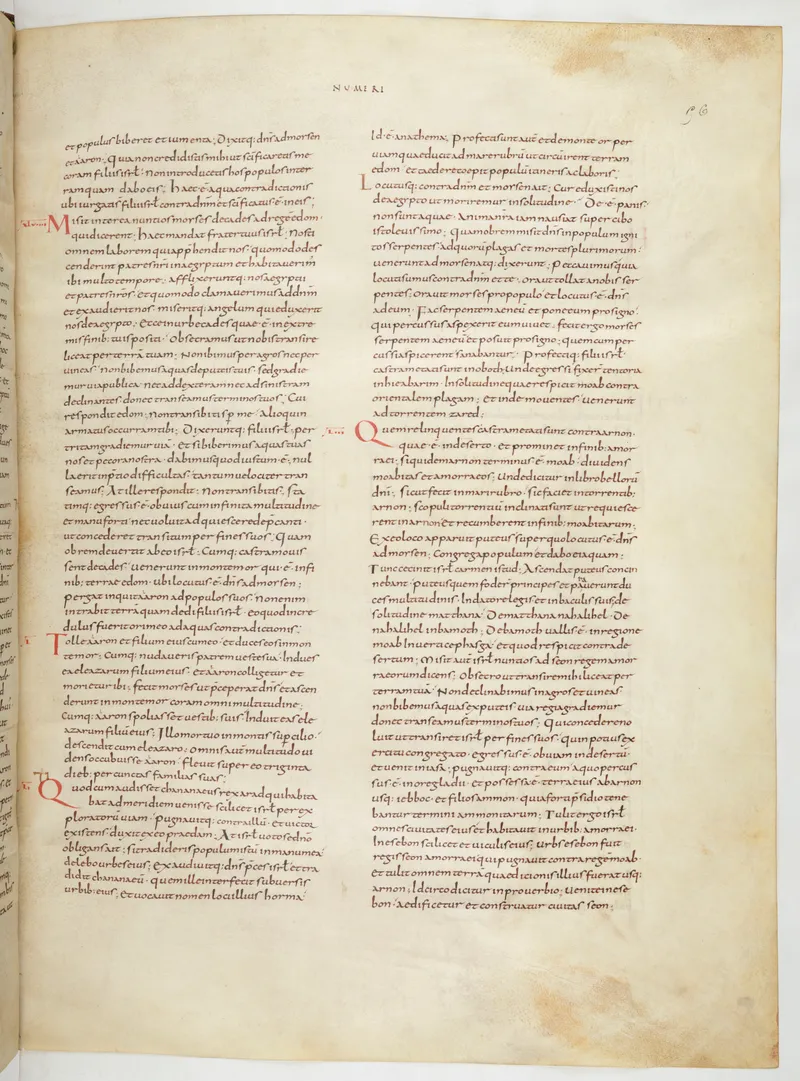 NUMERI
56
et populus biberet et iumenta; Dixitq: dn̅s ad morsen
et aaron; Quia non credidistis mihi ut sc̅ificaretis me
coram filiis isrt̅· non introducetis hos populos in ter
ram quam dabo eis; Haec ē aqua contradictionis
ubi iurgati s̅ filii isrt̅ contra dn̅m et sc̅ificatus ē in eis;
Misit interea nuntios morses de cades ad regē edom·
qui dicerent; Haec mandat frater tuus isrt̅· Nosti
omnem laborem qui app̅hendit nos· quomodo des
cenderint patres nr̅i in aegyptum et habitauerim
ibi multo tempore; Afflixeruntq: nos aegyptii
et patres nr̅os· et quomodo clamauerimus ad dn̅m
et exaudierit nos· miseritq: angelum qui eduxerit
nos de aegypto; Ecce in urbe cades quae ē in extre
mis finib: tuis positi· Obsecramus ut nobis transire
liceat per terrā tuam; Non ibimus per agros nec per
uineas· non bibemus aquas de puteis tuis· sed gradie
mur uia publica· nec ad dexteram nec ad sinisteram
declinantes donec transeamus terminos tuos; Cui
respondit edom· non transibitis p̱ me· Alioquin
armatus occurram tibi; Dixeruntq: filii isrt̅· per
tritam gradiemur uiā· et si biberimus aquas tuas
nos et pecora nr̅a· dabimus quod iustum ē· nul
la erit in p̱tio difficultas· tantum uelociter tran
seamus; At ille respondit· Non transibitis· sta
timq: egressus ē obuius cum infinita multitudine·
et manu forti nec uoluit adquiescere dep̱canti·
ut concederet transitum per fines suos; Quam
ob rem deuertit ab eo isrt̅· Cumq: castra mouis
sent de cades· uenerunt in montem or qui ē in fi
nib: terrae edom· ubi locutus ē dn̅s ad morsen;
pergat inquit aaron ad populos suos· non enim
intrabit terrā quam dedi filiis isrt̅· eo quod incre
dulus fuerit ori meo ad aquas contradictionis;
Tolle aaron et filium eius cum eo· et duces eos in mon
tem or; Cumq: nudaueris patrem ueste sua· Indues
ea eleazarum filium eius· et aaron colligetur et
morietur ibi; fecit morses ut p̱ceperat dn̅s et ascen
derunt in montem or coram omni multitudine;
Cumq: aaron spoliasset uestib: suis· Induit eas ele
azarum filiū eius; Illo mortuo in montis sup̱cilio·
descendit cum eleazaro; omnis aut̅ multitudo ui
dens occubuisse aaron· fleuit super eo triginta
dieb: per cunctas familias suas;
Quod cum audisset chananaeus rex arad qui habita
bat ad meridiem· uenisse scilicet isrt̅ per ex
ploratorū uiam· pugnauit contra illū· et uictor
existens· duxit ex eo praedam; At isrt̅ uoto se dn̅o
obligans ait; si tradideris populum istū in manu mea·
delebo urbes eius; Exaudiuitq: dn̅s p̱ces isrt̅ et tra
didit chananaeū· quem ille interfecit subuersis
urbib: eius; et uocauit nomen loci illius horma·
Id·ē· anathema; Profecti sunt aut̅ et de monte or per
uiam quae ducit ad mare rubrū ut circuirent terram
edom· et taedere coepit populū itineris ac laboris;
Locutusq: contra dn̅m et morsen ait; Cur eduxisti nos
de aegypto ut moriremur in solitudine· Deē panis·
non sunt aquae· Anima nr̅a iam nausiat super cibo
isto leuissimo; Quam ob rem misit dn̅s in populum igni
tos serpentes· ad quorū plagas et mortes plurimorum·
uenerunt ad morsen atq: dixerunt; Peccauimus quia
locuti sumus contra dn̅m et te· ora ut tollat a nobis ser
pentes· orauit morses pro populo et locutus ē dn̅s
ad eum· Fac serpentem aeneū et pone eum pro signo·
qui percussus aspexerit eum uiuet; fecit ergo morses
serpentem aeneū et posuit pro signo; quem cum per
cussi aspicerent sanabantur; Profectiq: filii isrt̅·
castra metati sunt in oboth· Unde egressi fixer̅ tentoria
in hieabarim· In solitudine quae respicit moab contra
orientalem plagam; et inde mouentes· uenerunt
ad torrentem zared;
Quem relinquentes castra metati sunt contra arnon·
quae ē in deserto· et prominet in finib: amor
raei; siquidem arnon terminus ē moab· diuidens
moabitas et amorraeos; Unde dicitur in libro bellorū
dn̅i; sicut fecit in mari rubro· sic faciet in torrentib:
arnon; scopuli torrentiū inclinati sunt ut requiesce
rent in ar non et recumberent in finib: moabitarum;
Ex eo loco apparuit puteus super quo locutus ē dn̅s
ad morsen; Congrega populum et dabo ei aquam;
Tunc cecinit isrt̅ carmen istud; Ascendat puteus concin
nebant· puteus quem foder̅ principes et parauerunt du
ces multitudinis· In datore legis et in baculis suis; de
solitudine matthana· De matthana nahalihel· De
nahalihel in bamoth; De bamoth uallis ē in regione
moab· In uertice phasga· et quod respicit contra de
sertum; Misit aut̅ isrt̅ nuntios ad seon regem amor
raeorum dicens; Obsecro ut transire mihi liceat per
terram tuā· Non declinabimus in agros et uineas·
non bibemus aquas ex puteis· uia regia gradiemur
donec transeamus terminos tuos; Qui concedere no
luit ut transiret isrt̅ per fines suos; quin potius ex
ercitu congregato· egressus ē obuiam in desertū·
et uenit in iasa; pugnauitq: contra eum· a quo percus
sus ē in ore gladii· et possessa ē terra eius ab arnon
usq: iebboc· et filios ammon· quia forti p̱sidio tene
bantur termini ammonitarum; Tulit ergo isrt̅
omnes ciuitates eius et habitauit in urbib: amorraei·
In esebon scilicet et uiculis eius; Urbs esebon fuit
regis seon amorraei qui pugnauit contra regē moab·
et tulit omnem terrā quae dicionis illius fuerat usq:
arnon; Idcirco dicitur in prouerbio; Uenite in ese
bon· aedificetur et construatur ciuitas seon;